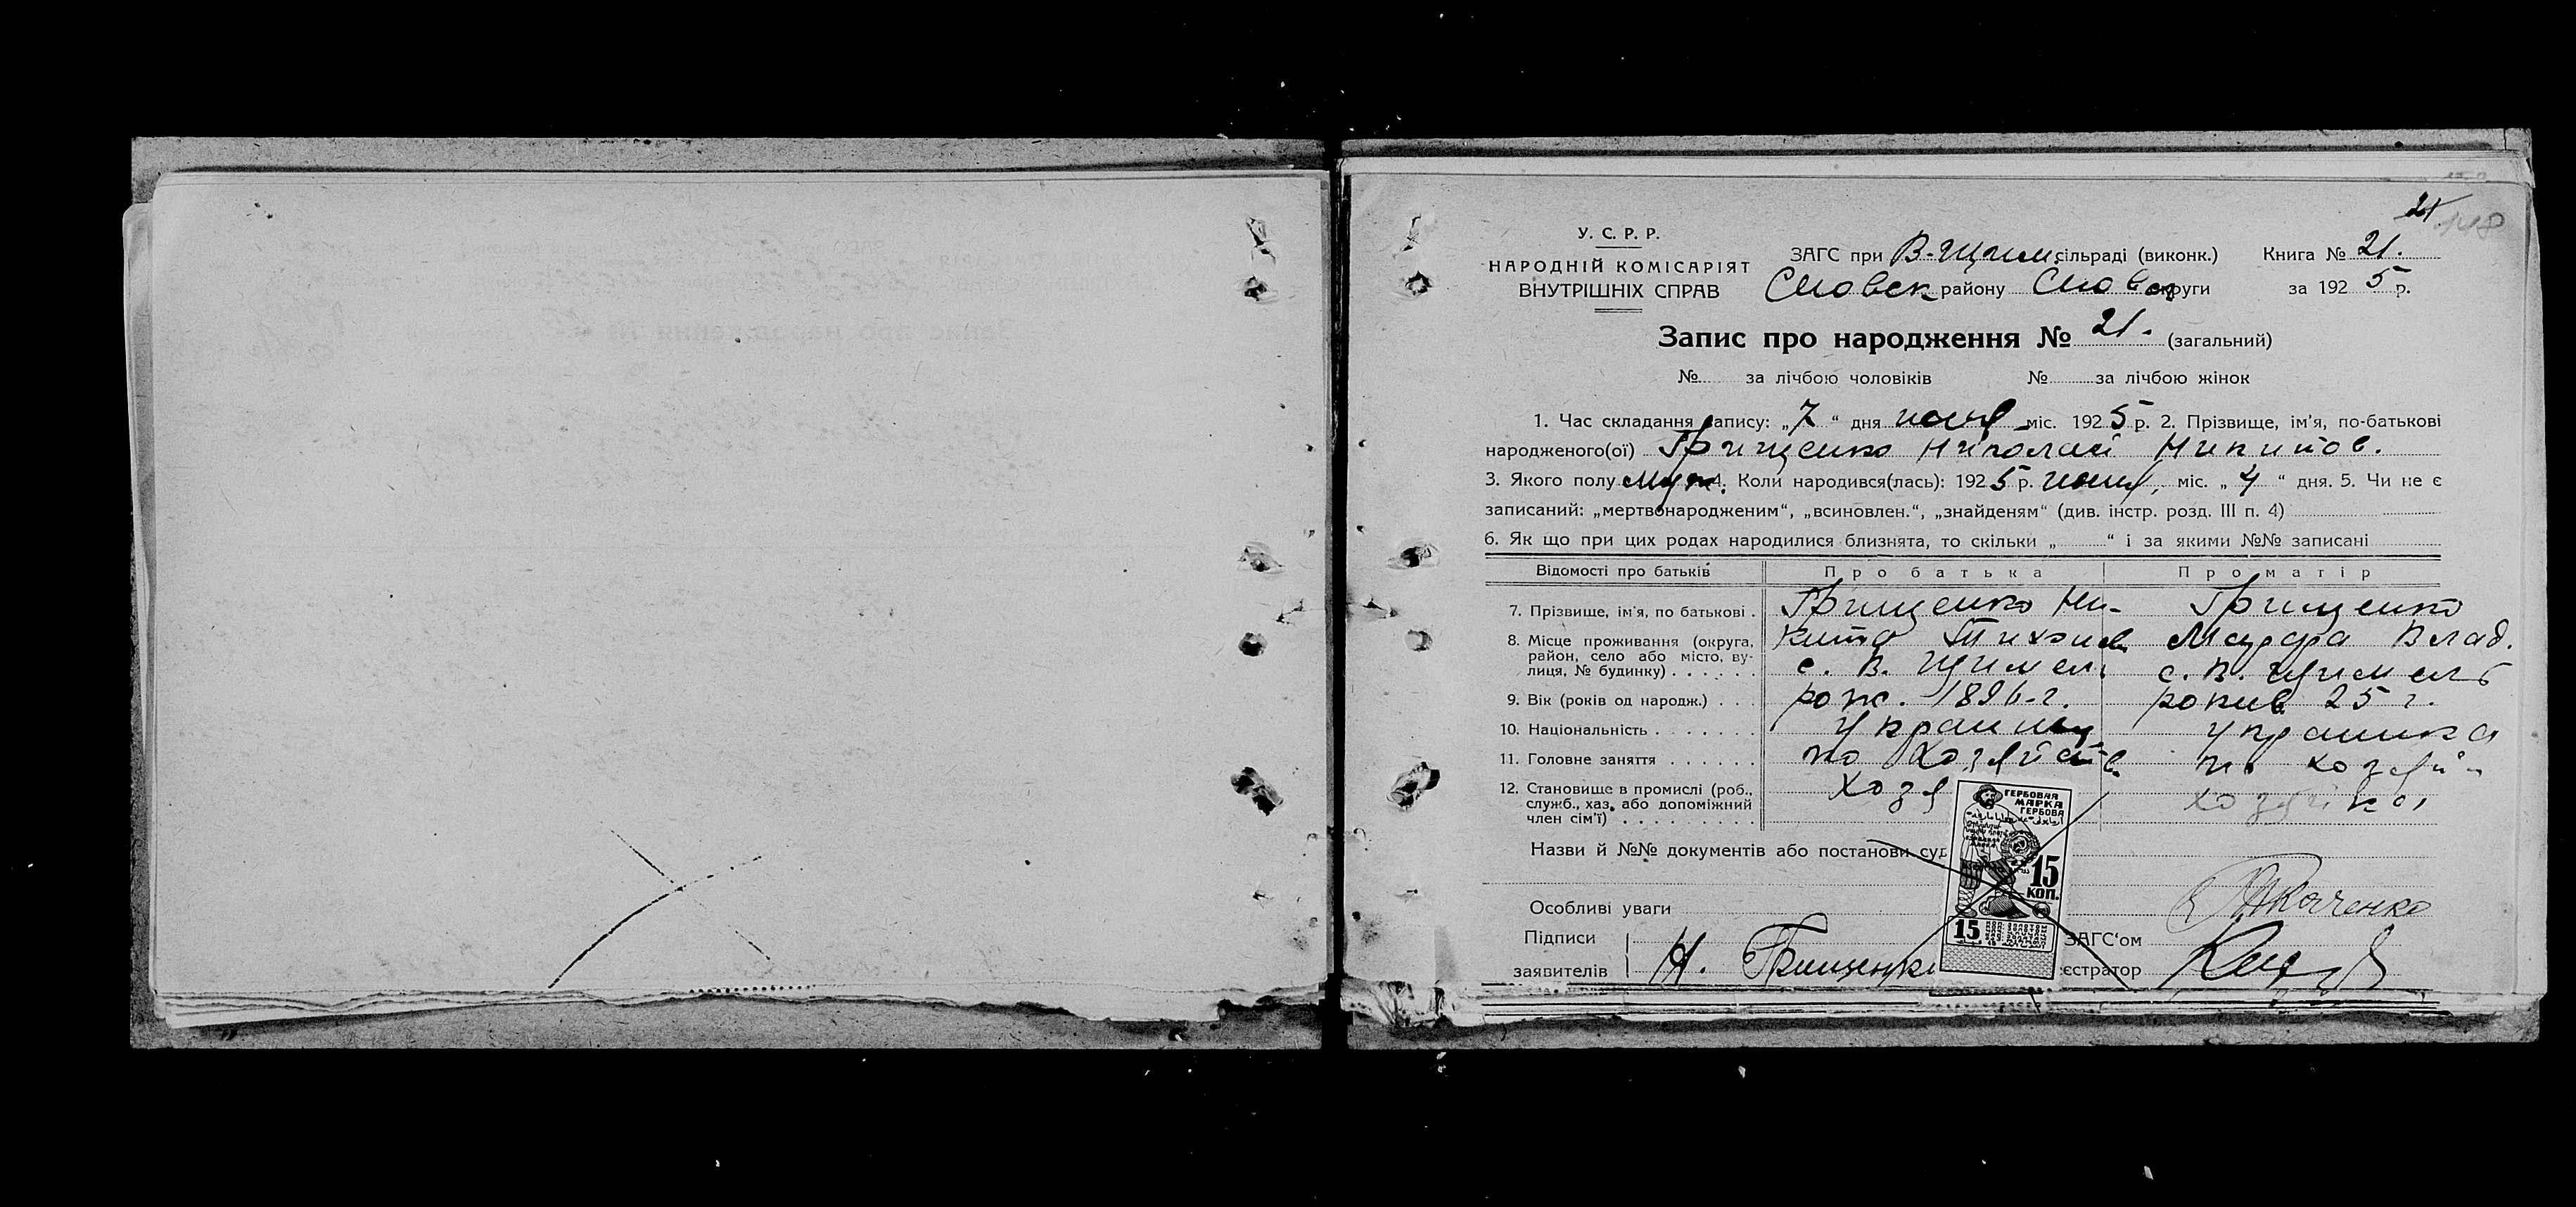 21
148
У. С. Р. Р.
НАРОДНІЙ КОМІСАРІЯТ
ВНУТРІШНІХ СПРАВ
ЗАГС при В.-Щимел. сільраді (виконк.) Книга № 21.
району округи за 1925 р.
Запис про народження № 21. (загальний)
№ за лічбою чоловіків № за лічбою жінок
1. Час складання запису: „7“ дня міс. 1925 р. 2. Прізвище, ім'я, по-батькові
народженого(ої) Грищенко Николай Никитов.
3. Якого полу муж. 4. Коли народився(лась): 1925 р. міс. „4“ дня. 5. Чи не є
записаний: „мертвонародженим“, „всиновлен.“, „знайденям“ (див. інстр. розд. III п. 4)
6. Як що при цих родах народилися близнята, то скільки „ “ і за якими №№ записані
Відомості про батьків Про батька Про матір
7. Прізвище, ім'я, по батькові . Грищенко Ни- Грищенко
8. Місце проживання (округа, кита Тихонов Мавра Влад.
район, село або місто, ву-
лиця, № будинку) . . . . . . с. В. Щимел. с. В. Щимель
9. Вік (років од народж.) . . . рож. 1896 г. 25 г.
10. Національність . . . . . . . Украинец украинка
11. Головне заняття . . . . . . по хозяйств. по хозяй
12. Становище в промислі (роб., хозя хозяйка
служб., хаз. або допоміжний
член сім'ї) . . . . . . . . .
Назви й №№ документів або постанови суд
Особливі уваги
Підписи
заявителів Н. Грищенко
ЗАГС‘ом Ткаченко
єстратор
ГЕРБОВАЯ
МАРКА
ГЕРБОВА
15
КОП.
15